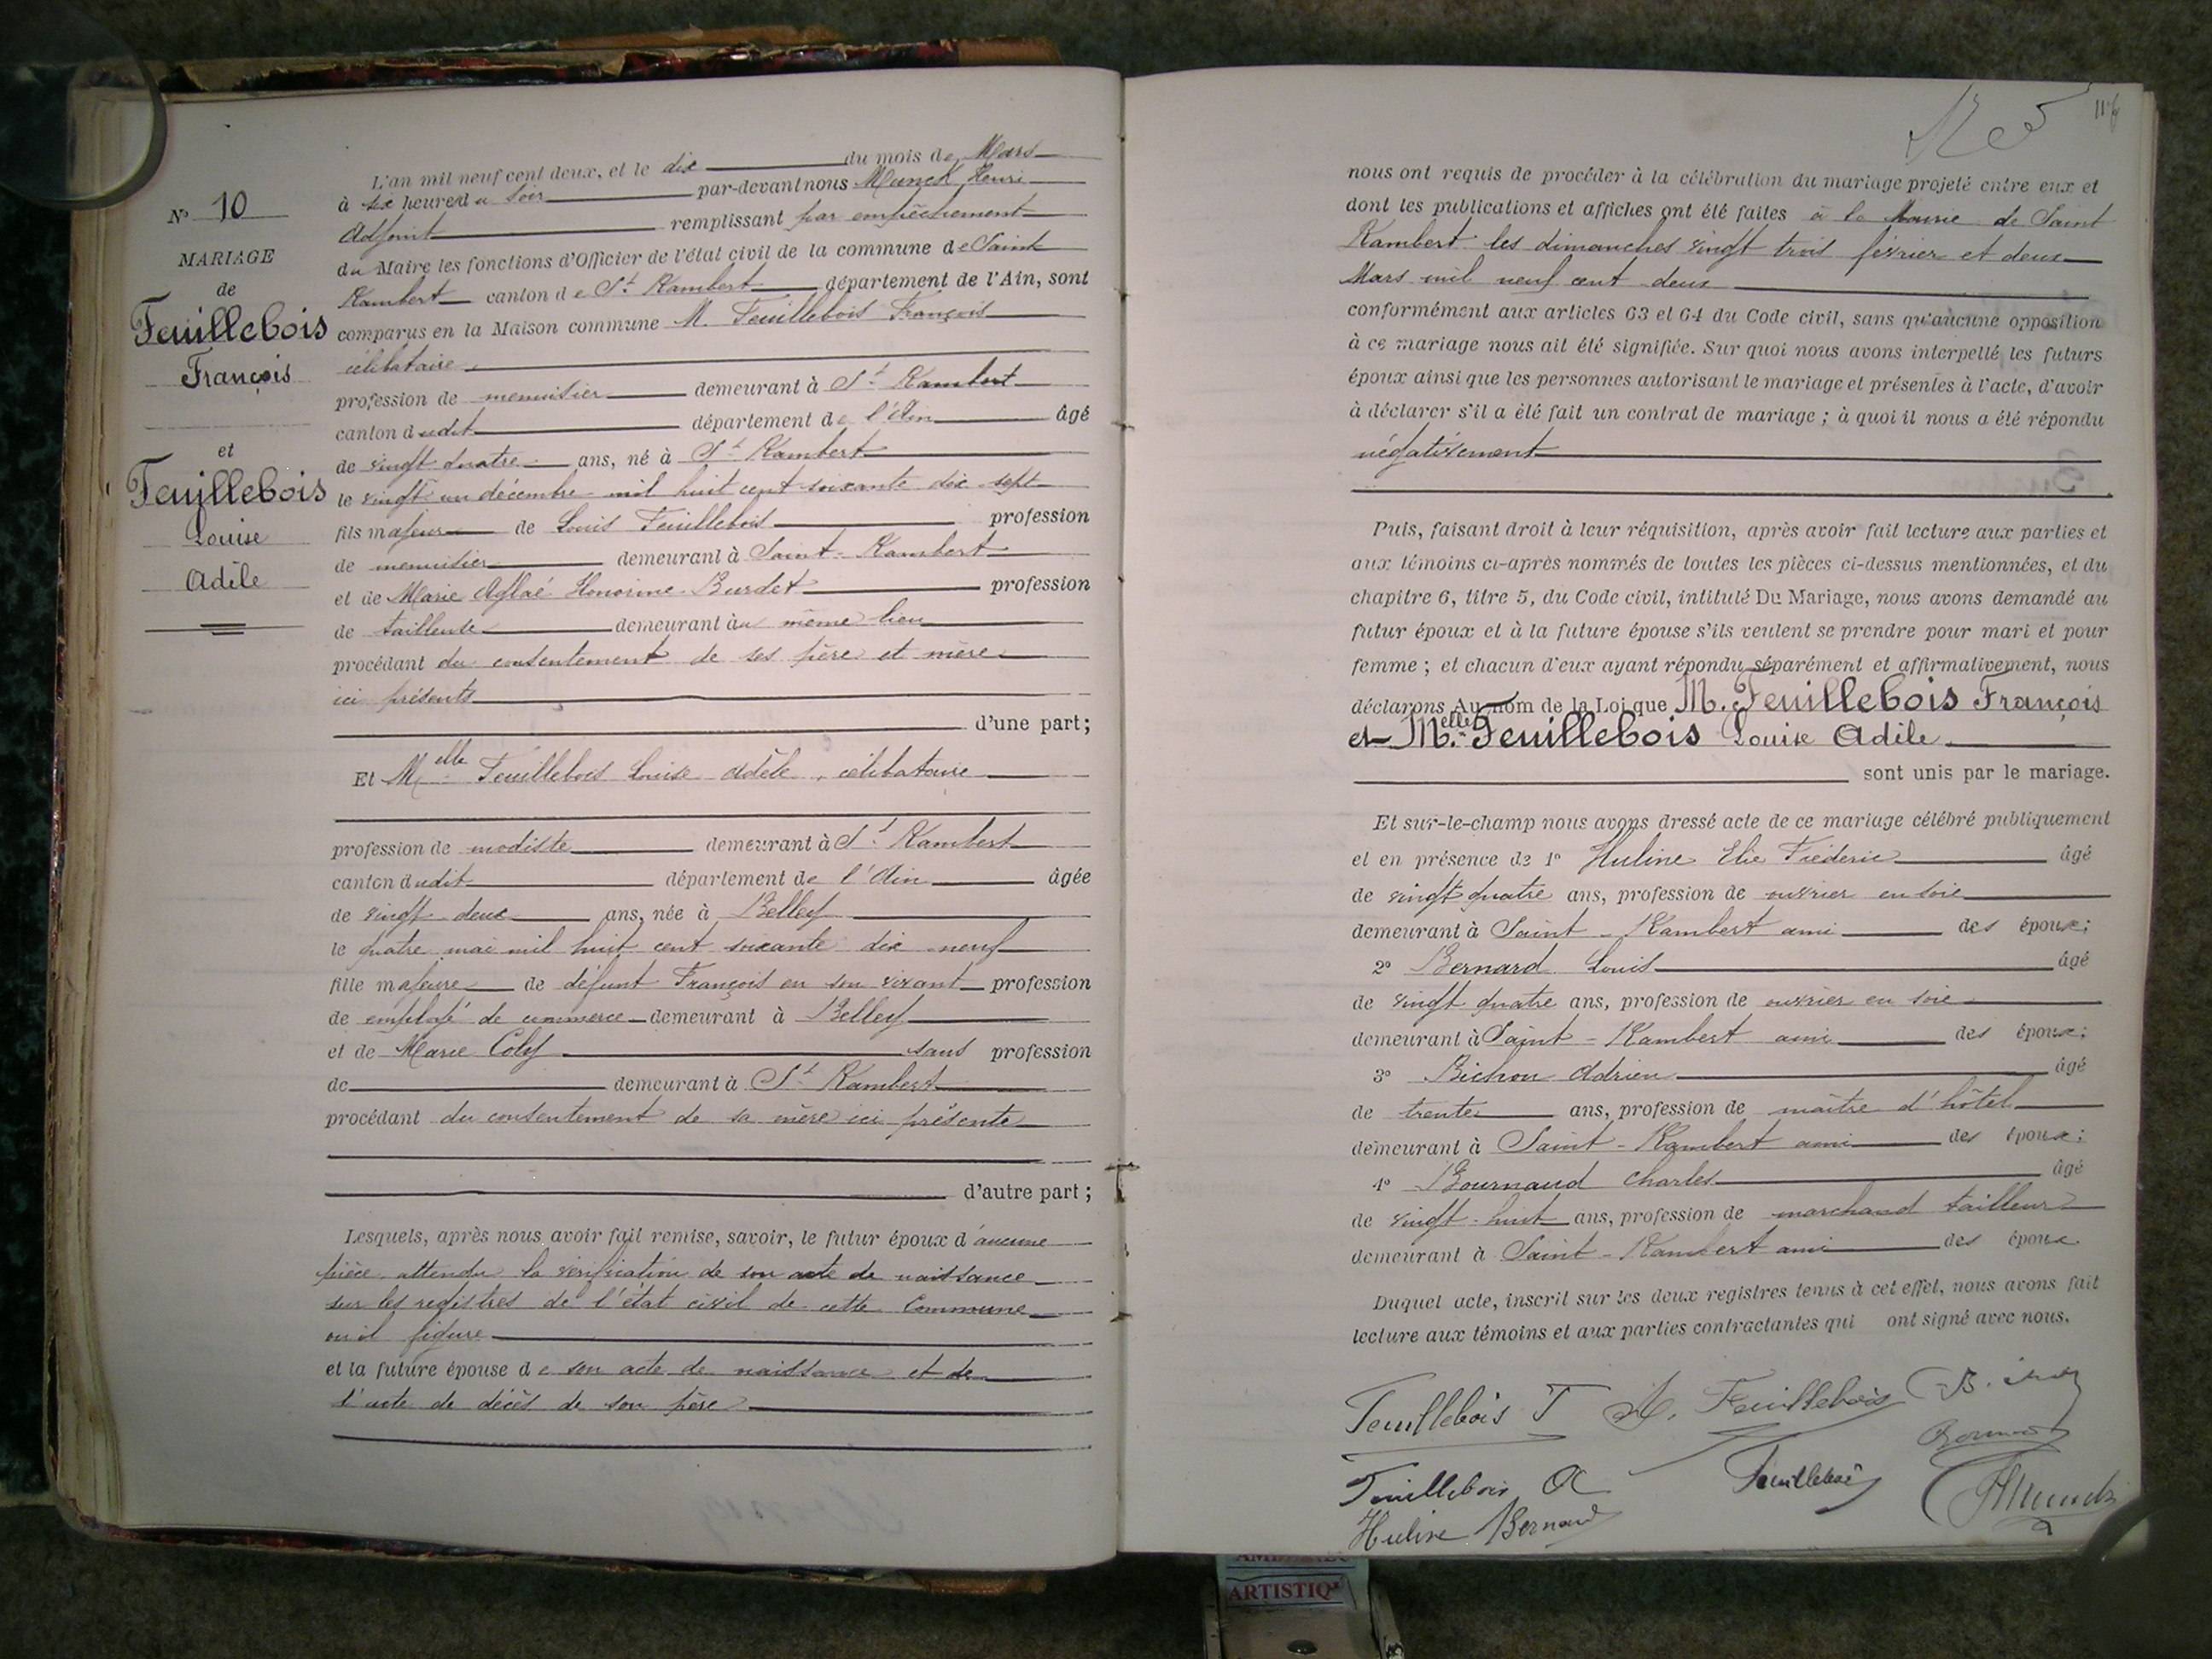 N° 10
MARIAGE
de
Feuillebois
François
et
Feuillebois
Louise
Adèle
L'an mil neuf cent deux, et le dix du mois de Mars
à six heures du soir par-devant nous Munck Henri
Adjoint remplissant par empêchement
du Maire les fonctions d'Officier de l'état civil de la commune de Saint
Rambert canton de St Rambert département de l'Ain, sont
comparus en la Maison commune M. Feuillebois François
célibataire
profession de menuisier demeurant à St Rambert
canton dudit département de l'Ain âgé
de vingt quatre ans, né à St Rambert
le vingt un décembre mil huit cent soixante dix sept
fils majeur de Louis Feuillebois profession
de menuisier demeurant à Saint-Rambert
et de Marie Aglaé Honorine Burdet profession
de tailleuse demeurant au même lieu
procédant du consentement de ses père et mère
ici présents
d'une part;
Et Melle Feuillebois Louise Adèle, célibataire
profession de modiste demeurant à St Rambert
canton dudit département de l'Ain âgée
de vingt deux ans, née à Belley
le quatre mai mil huit cent soixante dix neuf
fille majeure de défunt François en son vivant profession
de employé de commerce demeurant à Belley
et de Marie Coly sans profession
de demeurant à St Rambert
procédant du consentement de sa mère ici présente
d'autre part;
Lesquels, après nous avoir fait remise, savoir, le futur époux d'aucune
pièce attendu la vérification de son acte de naissance
sur les registres de l'état civil de cette Commune
où il figure
et la future épouse de son acte de naissance et de
l'acte de décès de son père
116
nous ont requis de procéder à la célébration du mariage projeté entre eux et
dont les publications et affiches ont été faites à la Mairie de Saint
Rambert les dimanches vingt trois février et deux
Mars mil neuf cent deux
conformément aux articles 63 et 64 du Code civil, sans qu'aucune opposition
à ce mariage nous ait été signifiée. Sur quoi nous avons interpellé les futurs
époux ainsi que les personnes autorisant le mariage et présentes à l'acte, d'avoir
à déclarer s'il a été fait un contrat de mariage; à quoi il nous a été répondu
négativement
Puis, faisant droit à leur réquisition, après avoir fait lecture aux parties et
aux témoins ci-après nommés de toutes les pièces ci-dessus mentionnées, et du
chapitre 6, titre 5, du Code civil, intitulé Du Mariage, nous avons demandé au
futur époux et à la future épouse s'ils veulent se prendre pour mari et pour
femme; et chacun d'eux ayant répondu séparément et affirmativement, nous
déclarons Au nom de la Loi que M. Feuillebois François
et Melle Feuillebois Louise Adèle
sont unis par le mariage.
Et sur-le-champ nous avons dressé acte de ce mariage célébré publiquement
et en présence de 1° Huline Elie Fréderic âgé
de vingt quatre ans, profession de ouvrier en soie
demeurant à Saint-Rambert ami des époux;
2° Bernard Louis âgé
de vingt quatre ans, profession de ouvrier en soie
demeurant à Saint-Rambert ami des époux;
3° Bichon Adrien âgé
de trente ans, profession de maître d'hôtel
demeurant à Saint-Rambert ami des époux;
4° Bournaud Charles âgé
de vingt-huit ans, profession de marchand tailleur
demeurant à Saint-Rambert ami des époux
Duquel acte, inscrit sur les deux registres tenus à cet effet, nous avons fait
lecture aux témoins et aux parties contractantes qui ont signé avec nous.
Feuillebois F A. Feuillebois
Feuillebois
Feuillebois
Huline Bernard
HMunck
ARTISTIQ